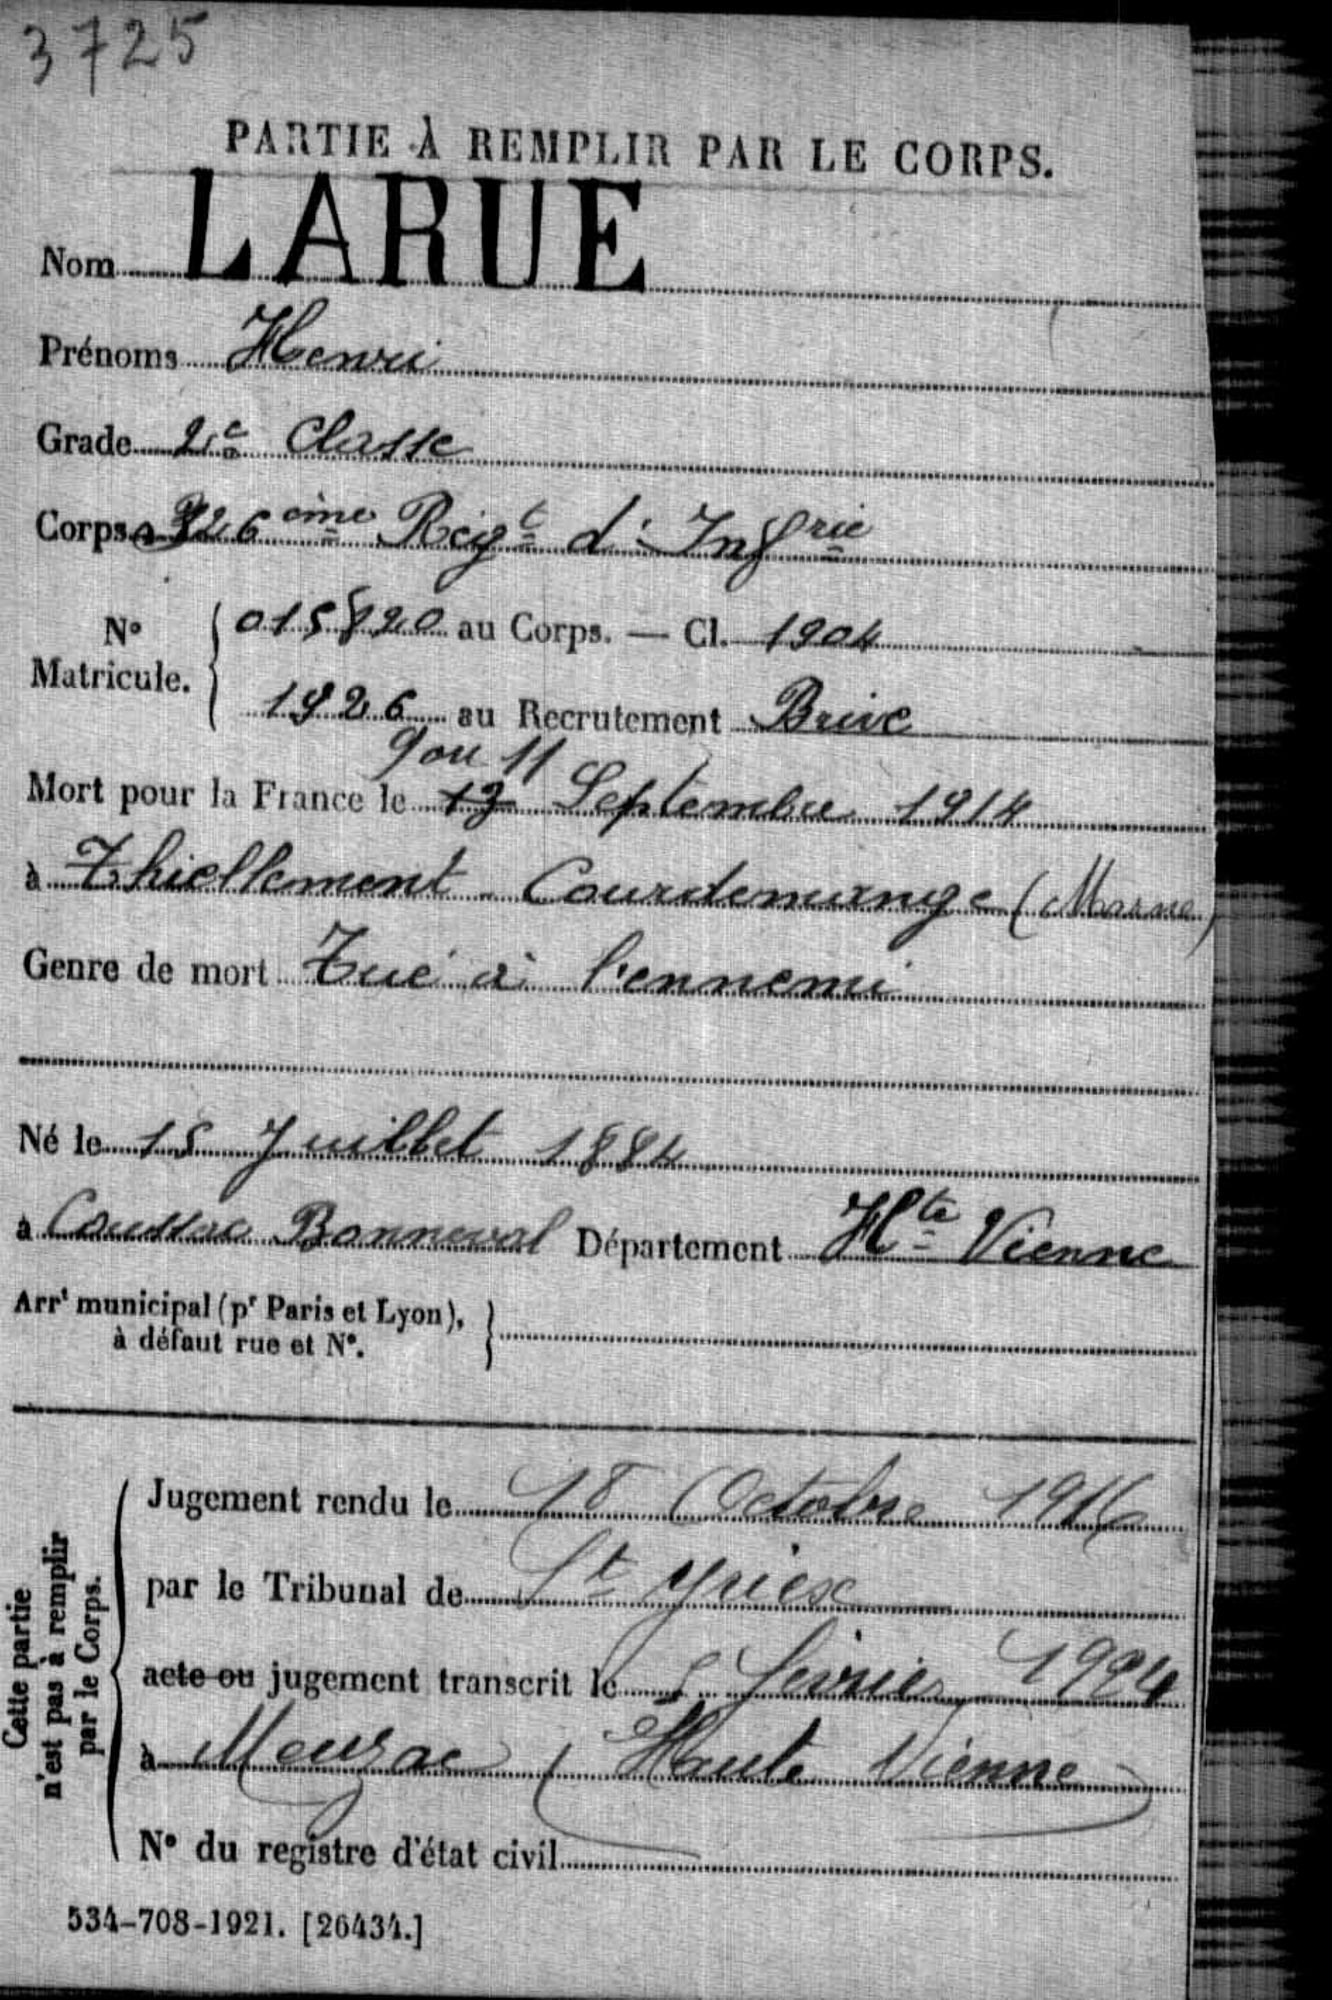 3725
PARTIE À REMPLIR PAR LE CORPS.
Nom LARUE
Prénoms Henri
Grade 2e Classe
Corps 326ème Régt d'Infrie
No Matricule. { 015820 au Corps. — Cl. 1904
1926 au Recrutement Brive
9 ou 11
Mort pour la France le 12 Septembre 1914
à Thiellement - Courdemange (Marne)
Genre de mort Tué à l'ennemi
Né le 15 Juillet 1884
à Coussac Bonneval Département Hte Vienne
Arrt municipal (pr Paris et Lyon), }
à défaut rue et No.
Cette partie
n'est pas à remplir
par le Corps.
Jugement rendu le 18 Octobre 1916
par le Tribunal de St Yrieix
acte ou jugement transcrit le 5 février 1924
à Meuzac (Haute Vienne)
No du registre d'état civil
534-708-1921. [26434.]